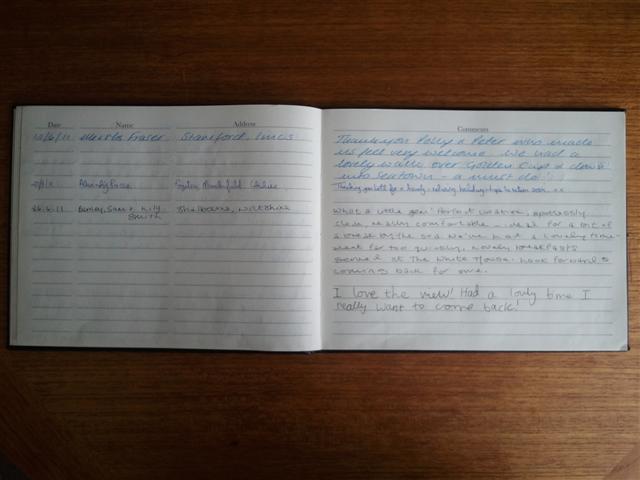 Date Name Address
Fraser Stamford, Lincs
26.6.11 Barney, Sam & Lily Shelbourne, Wiltshire
Smith
Comments
Thankyou Polly & Peter who made
us feel very welcome. We had a
lovely walk over Golden Cap & down
into Seatown - a must do!
Thanking you both for a lovely, relaxing holiday - hope to return soon. x x
What a little gem! Perfect location, spotlessly
clean, really comfortable - ideal for a bit of
by the sea. We've had a lovely time -
went far too quickly, lovely breakfasts
served at The White House. Look forward to
coming back for more.
I love the view! Had a lovly time I
really want to come back!